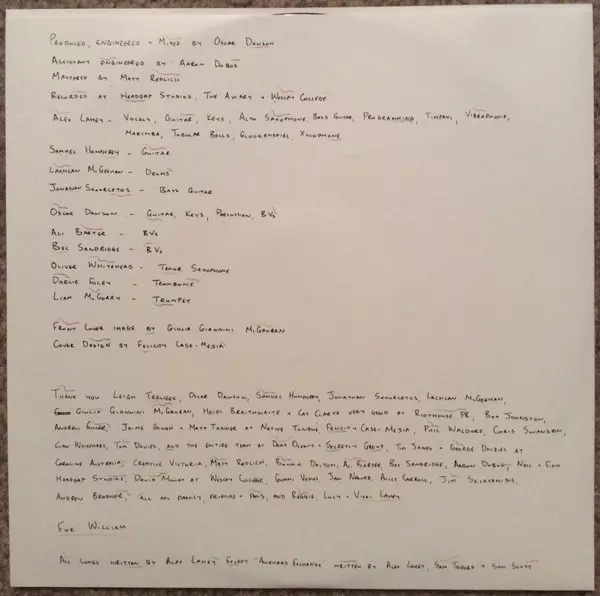 Produced, engineered + Mixed by Oscar Dawson
Assistant engineered by Aaron Dobos
Mastered by Matt Redlich
Recorded at Headgap Studios, The Aviary + Wesley College
Alex Lahey - Vocals, Guitar, Keys, Alto Saxophone, Bass Guitar, Programming, Timpani, Vibraphone,
Marimba, Tubular Bells, Glockenspiel, Xylophone
Samuel Humphrey - Guitar
Lachlan McGeehan - Drums
Jonathan Skourletos - Bass Guitar
Oscar Dawson - Guitar, Keys, Percussion, BVs
Ali Barter - BVs
Bec Sandridge - BVs
Oliver Whitehead - Tenor Saxophone
Darcie Foley - Trombone
Liam McGorry - Trumpet
Front cover image by Giulia Giannini McGauran
Cover Design by Felicity Case-Mejia
Thank you Leigh Treweek, Oscar Dawson, Samuel Humphrey, Jonathan Skourletos, Lachlan McGeehan,
Giulia Giannini McGauran, Heidi Braithwaite + Cat Clarke very good at Riothouse PR, Ben Johnston,
Andrew, Jaime Gough + Matt Tanner at Native Tongue, Felicity Case-Mejia, Phil Waldorf, Chris Swanson,
Tom Davies, and the entire team at Dead Oceans + Secretly Group, Tim Janes + George at
Caroline Australia, Creative Victoria, Matt Redlich, Dalton, Ali Barter, Bec Sandridge, Aaron Dobos, Neil + Finn
Headgap Studios, David at Wesley College, Venus, Sam Nawas, Alice Carroll, Jim
Andrew, all my family, friends + fans, and Reggie, Lucy + Vicki Lahey.
For William
All songs written by Alex Lahey except 'Awkward Exchange' written by Alex Lahey, Sam + Scott